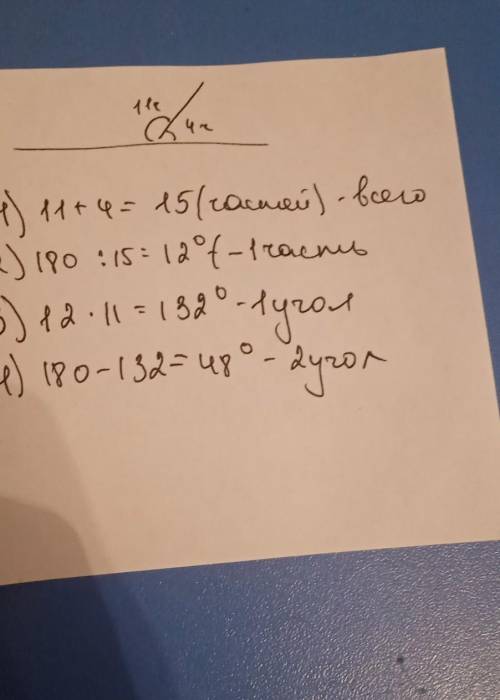 11ч 4ч
1) 11 + 4 = 15 (частей) - всего
2) 180 : 15 = 12° ( - 1 часть
3) 12 · 11 = 132° - 1 угол
4) 180 - 132 = 48° - 2 угол